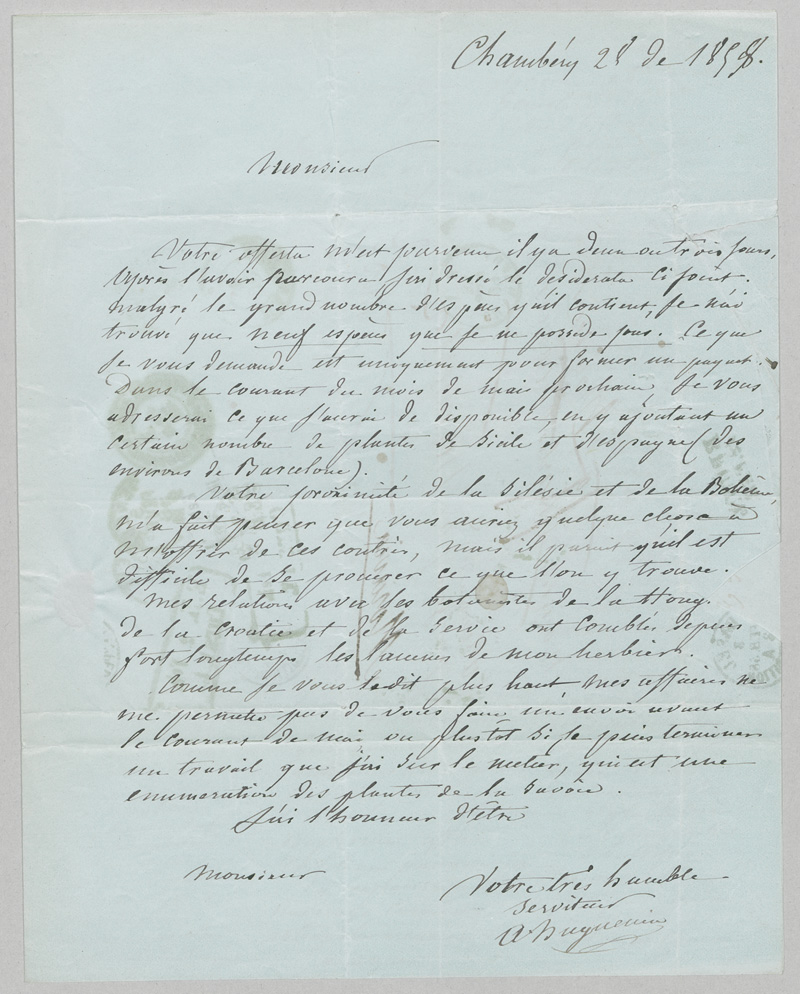 Chambéry 28 de 1858.
Monsieur
Votre offerta m'est parvenu il y a deux ou trois jours,
Après l'avoir parcouru j'ai dressé le desiderata ci joint.
malgré le grand nombre d'espèces qu'il contient, je n'ai
trouvé que neuf espèces que je ne possede pas. Ce que
je vous demande est uniquement pour former un paquet.
Dans le courant du mois de mai prochain, je vous
adresserai ce que j'aurai de disponible, en y ajoutant un
certain nombre de plantes de Sicile et d'espagne (des
environs de Barcelone).
Votre proximité de la Silésie et de la Bohême,
m'a fait penser que vous auriez quelque chose à
m'offrir de ces contrés, mais il parait qu'il est
difficile de se procurer ce que l'on y trouve.
Mes relations avec les botanistes de la Hong.
de la Croatie et de la Servie ont comblés depuis
fort longtemps les lacunes de mon herbier.
Comme je vous le dit plus haut, mes affaires ne
me permettre pas de vous faire un envoi avant
le courant de mai ou plustôt si je puis terminer
un travail que j'ai sur le metier, qui est une
enumeration des plantes de la Savoie.
J'ai l'honneur d'être
Monsieur
Votre très humble
serviteur
A huguenin